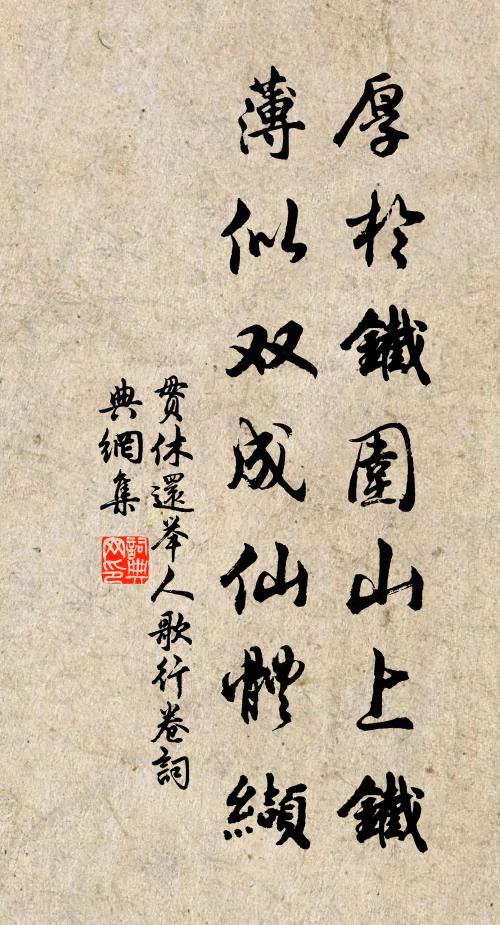 厚於鐵圍山上鐵
薄似双成仙體纈
貫休還举人歌行卷詞
典網集
詞典
网印